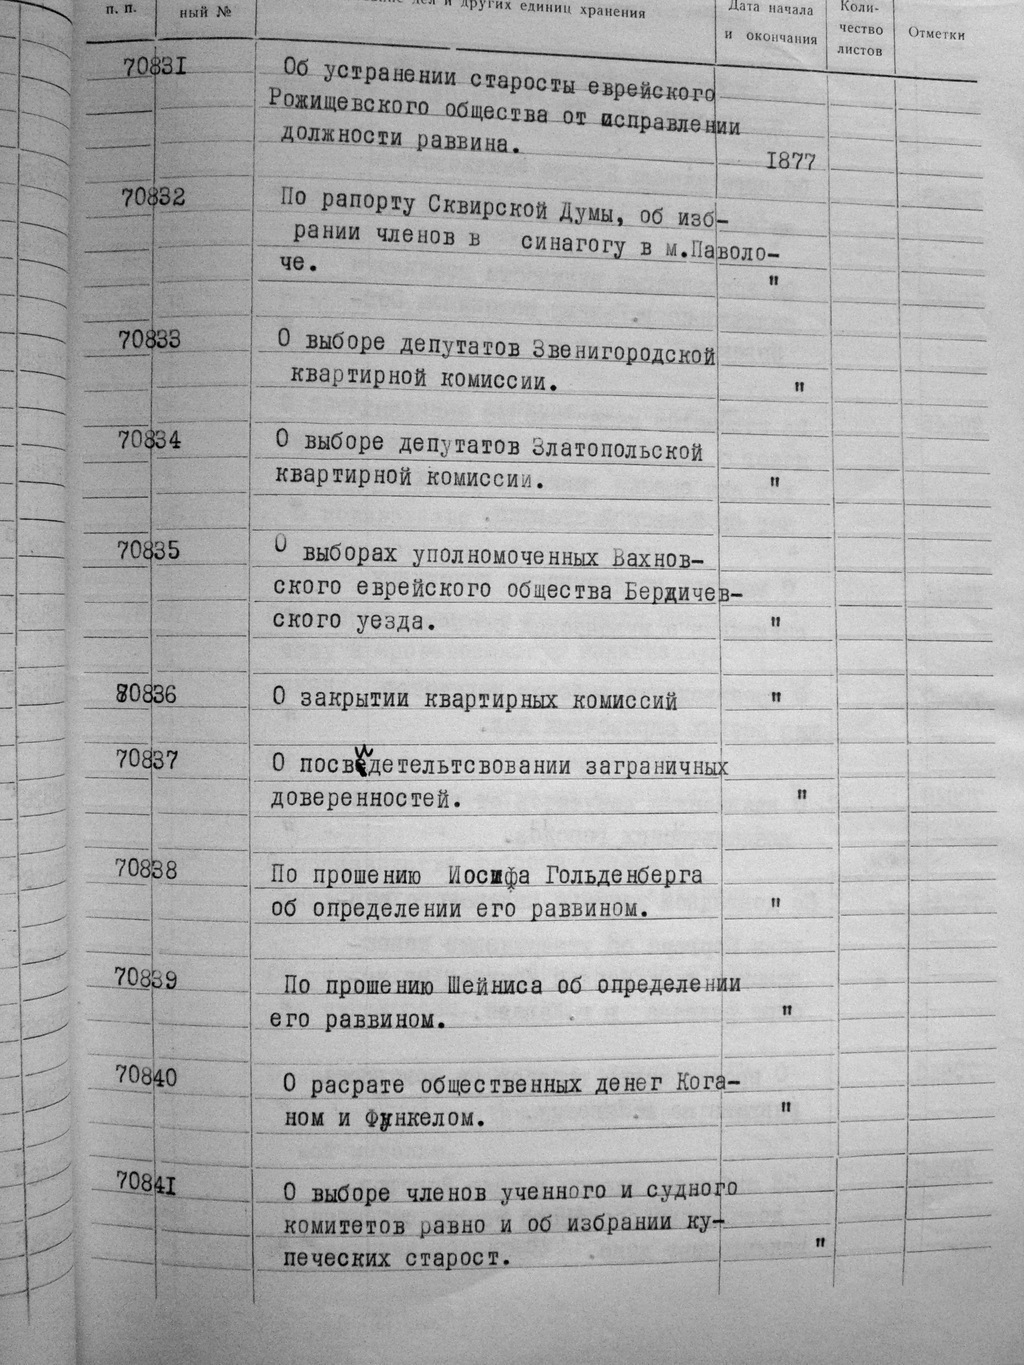 п. п.
ный №
дел и других единиц хранения
Дата начала
и окончания
Коли-
чество
листов
Отметки
70831 Об устранении старосты еврейского
Рожищевского общества от исправлении
должности раввина.
1877
70832 По рапорту Сквирской Думы, об изб-
рании членов в синагогу в м.Паволо-
че. "
70833 О выборе депутатов Звенигородской
квартирной комиссии. "
70834 О выборе депутатов Златопольской
квартирной комиссии. "
70835 О выборах уполномоченных Вахнов-
ского еврейского общества Бердичев-
ского уезда. "
70836 О закрытии квартирных комиссий "
70837 О посвидетельтсвовании заграничных
доверенностей. "
70838 По прошению Иосифа Гольденберга
об определении его раввином. "
70839 По прошению Шейниса об определении
его раввином. "
70840 О расрате общественных денег Кога-
ном и Функелом. "
70841 О выборе членов ученного и судного
комитетов равно и об избрании ку-
печеских старост. "